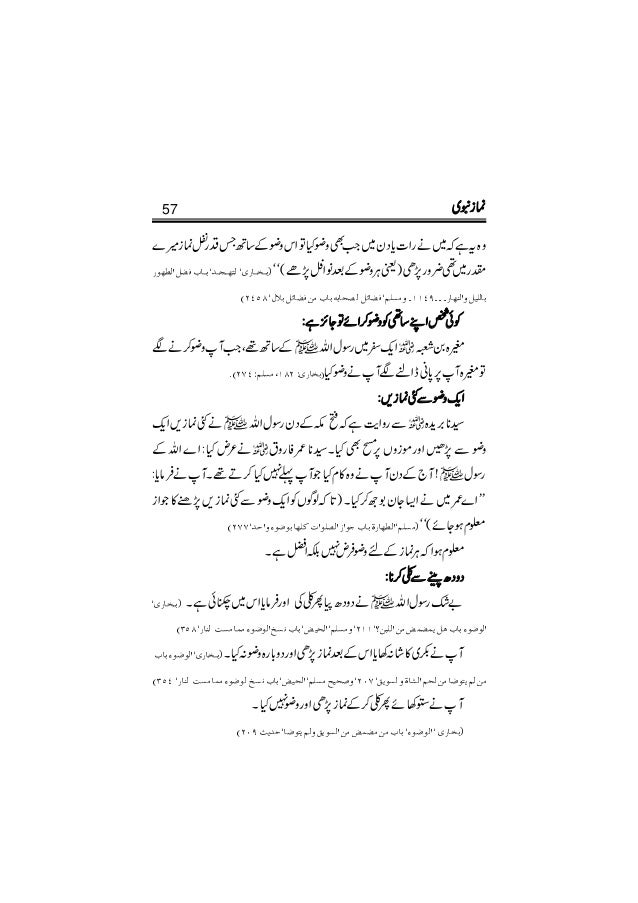 نماز نبوی 57
وہ یہ ہے کہ میں نے رات یا دن میں جب بھی وضو کیا تو اس وضو کے ساتھ جس قدر نفل نماز میرے
مقدر میں تھی ضرور پڑھی (یعنی ہر وضو کے بعد نوافل پڑھے )‘‘ (بخاری‘ التہجد‘ باب فضل الطهور
بالليل والنهار۔۔۔١١٤٩۔ ومسلم‘ فضائل الصحابه باب من فضائل بلال‘ ٢٤٥٨)
کوئی شخص اپنے ساتھی کو وضو کرائے تو جائز ہے:
مغیرہ بن شعبہ رضی اللہ عنہ ایک سفر میں رسول اللہ ﷺ کے ساتھ تھے، جب آپ وضو کرنے لگے
تو مغیرہ آپ پر پانی ڈالنے لگے آپ نے وضو کیا(بخاری: ١٨٢، مسلم: ٢٧٤).
ایک وضو سے کئی نمازیں:
سیدنا بریدہ رضی اللہ عنہ سے روایت ہے کہ فتح مکہ کے دن رسول اللہ ﷺ نے کئی نمازیں ایک
وضو سے پڑھیں اور موزوں پر مسح بھی کیا۔ سیدنا عمر فاروق رضی اللہ عنہ نے عرض کیا: اے اللہ کے
رسول ﷺ! آج کے دن آپ نے وہ کام کیا جو آپ پہلے نہیں کیا کرتے تھے۔ آپ نے فرمایا:
’’اے عمر میں نے ایسا جان بوجھ کر کیا۔ (تاکہ لوگوں کو ایک وضو سے کئی نمازیں پڑھنے کا جواز
معلوم ہو جائے)‘‘ (مسلم‘ الطهارة باب جواز الصلوات كلها بوضوء واحد‘ ٢٧٧)
معلوم ہوا کہ ہر نماز کے لئے وضو فرض نہیں بلکہ افضل ہے۔
دودھ پینے سے کلی کرنا:
بے شک رسول اللہ ﷺ نے دودھ پیا پھر کلی کی اور فرمایا اس میں چکنائی ہے۔ (بخاری‘
الوضوء باب هل يمضمض من اللبن؟‘ ٢١١‘ ومسلم‘ الحيض‘ باب نسخ الوضوء مما مست النار‘ ٣٥٨)
آپ نے بکری کا شانہ کھایا اس کے بعد نماز پڑھی اور دوبارہ وضو نہ کیا۔ (بخاری‘ الوضوء باب
من لم يتوضا من لحم الشاة والسويق‘ ٢٠٧‘ وصحيح مسلم‘ الحيض‘ باب نسخ الوضوء مما مست النار‘ ٣٥٤)
آپ نے ستو کھائے پھر کلی کر کے نماز پڑھی اور وضو نہیں کیا۔
(بخاری‘ الوضوء‘ باب من مضمض من السويق ولم يتوضا‘ حديث ٢٠٩)